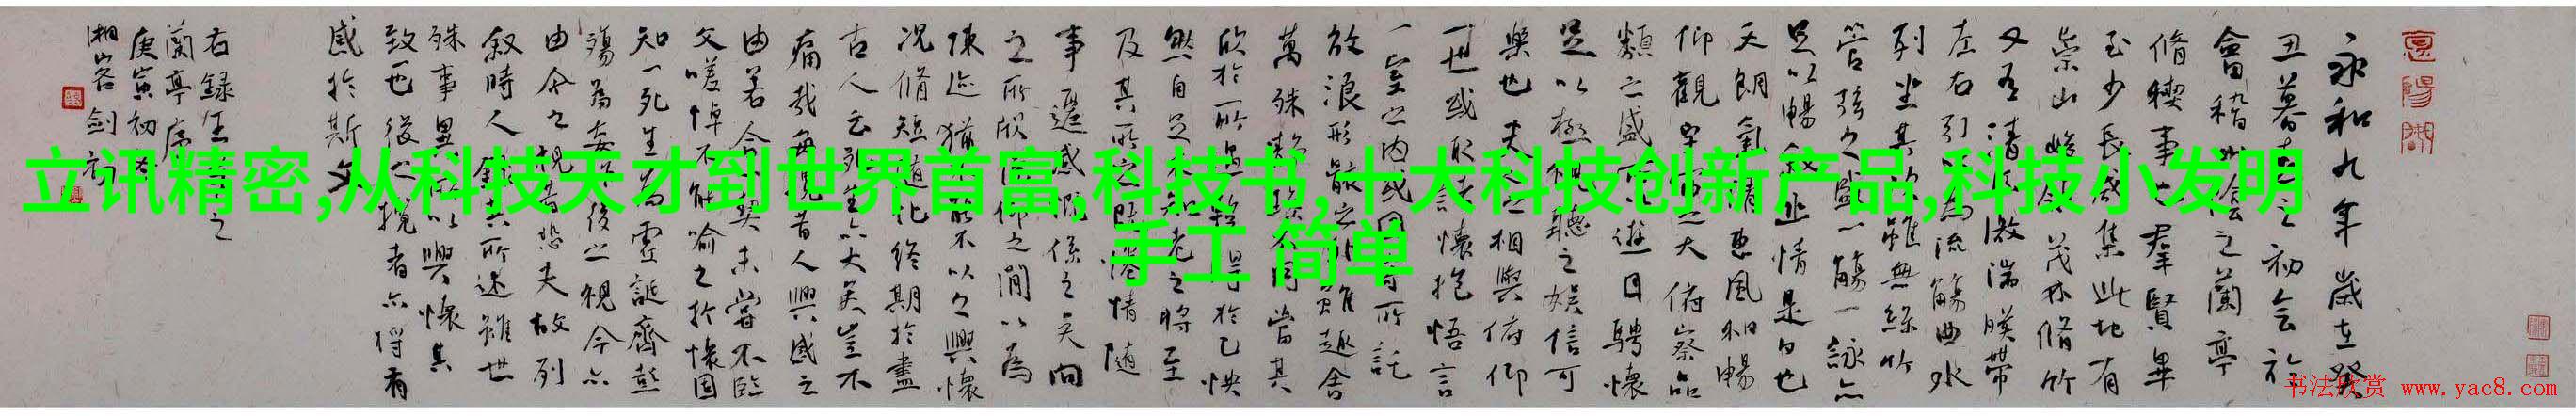 立讯精密,从科技天才到世界首富,科技书,十大科技创新产品,科技小发明
手工 简单
永和九年歲在癸
丑暮春之初会於
會稽山陰之蘭亭
脩稧事也羣賢畢
至少長咸集此地有
崇山峻領茂林脩竹
又有清流激湍暎帶
左右引以為流觴曲水
列坐其次雖無絲竹
管弦之盛一觴一詠亦
足以暢叙幽情是日也
天朗氣清惠風和暢
仰觀宇宙之大俯察品
類之盛所以遊目騁懷
足以極視聽之娛信可
樂也夫人之相與俯仰
一世或取諸懷抱悟言
一室之内或因寄所託
放浪形骸之外雖趣舍
萬殊静躁不同當其
欣於所遇暫得於己怏
然自足不知老之將至
及其所之既惓情随
事遷感慨係之矣向
之所欣俛仰之間以為
陳迹猶不能不以之興懷
况脩短随化終期於盡
古人云死生亦大矣豈不
痛哉每覽昔人興感之
由若合一契未嘗不臨
文嗟悼不能喻之於懷固
知一死生為虚誕齊彭
殤為妄作後之視今亦
由今之視昔悲夫故列
叙時人錄其所述雖世
殊事異所以興懷其
致一也後之攬者亦将有
感於斯文
右録王羲之
蘭亭序
庚寅初
湘客剑
书法欣赏 www.yac8.com